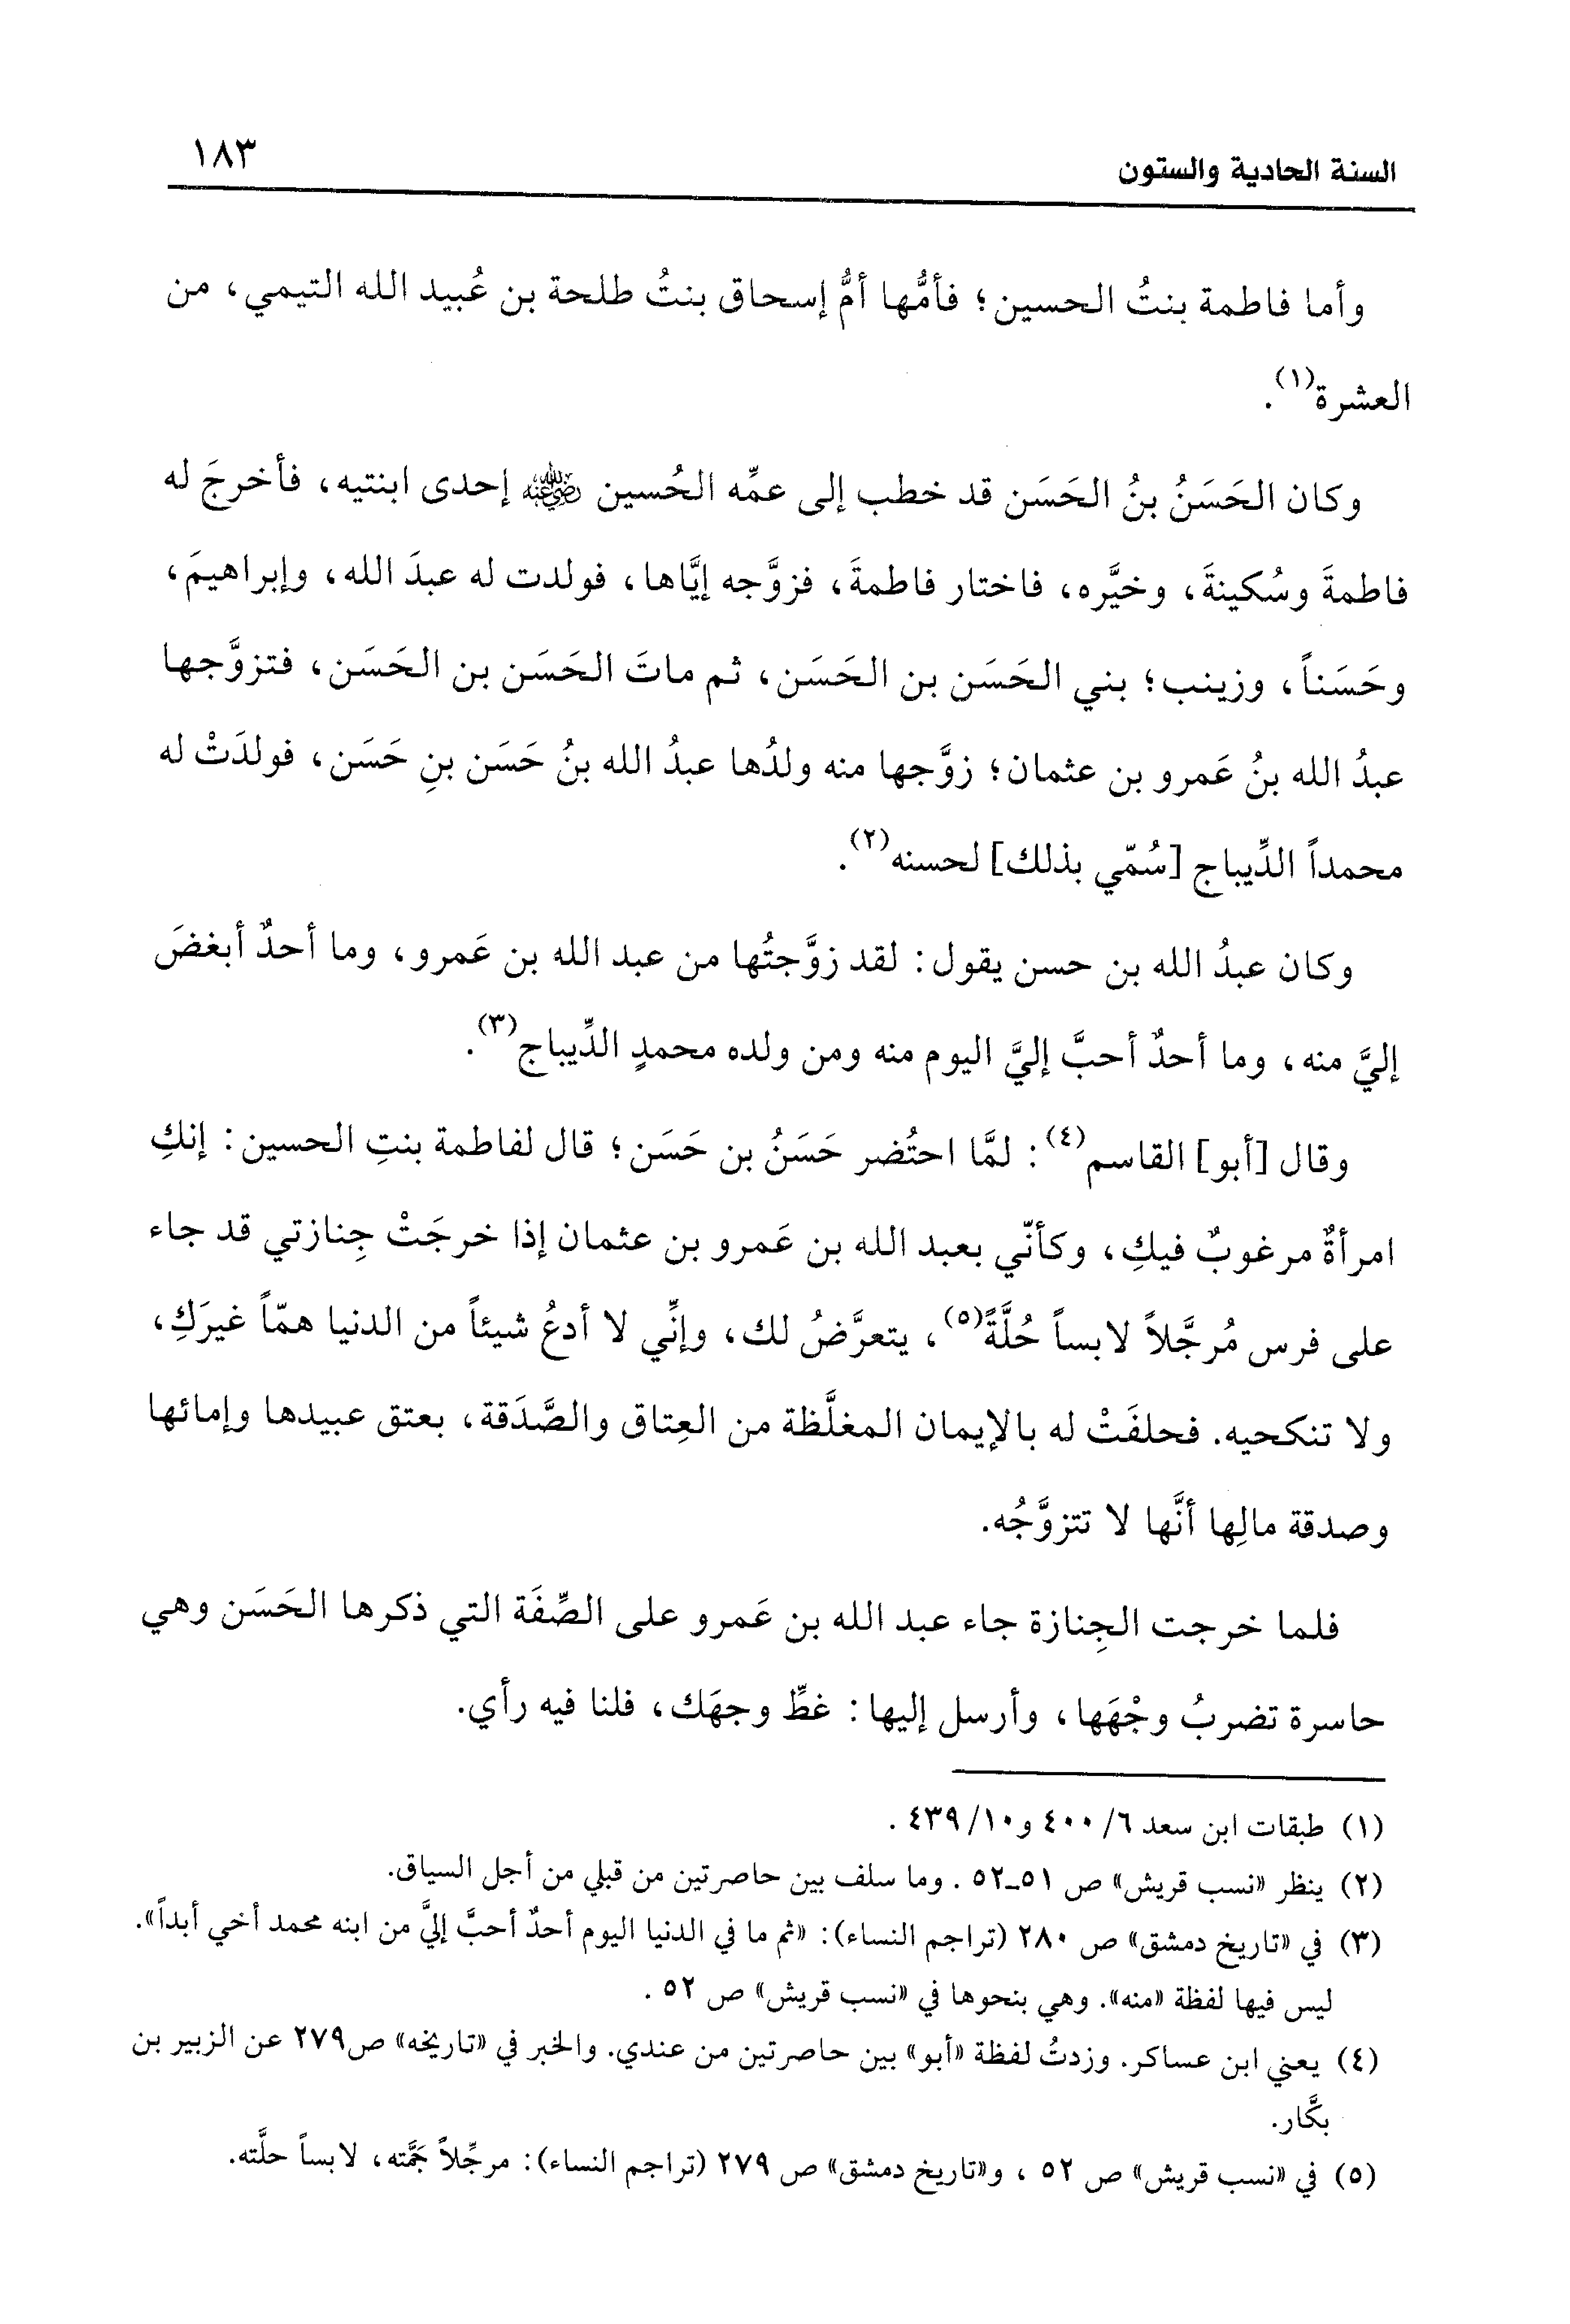 السنة الحادية والستون ١٨٣
وأما فاطمة بنتُ الحسين؛ فأمُّها أمُّ إسحاق بنتُ طلحة بن عُبيد الله التيمي، من
العشرة(١).
وكان الحَسَنُ بنُ الحَسَن قد خطب إلى عمِّه الحُسين رضي الله عنه إحدى ابنتيه، فأخرجَ له
فاطمةَ وسُكينةَ، وخيَّره، فاختار فاطمةَ، فزوَّجه إيَّاها، فولدت له عبدَ الله، وإبراهيمَ،
وحَسَناً، وزينب؛ بني الحَسَن بن الحَسَن، ثم ماتَ الحَسَن بن الحَسَن، فتزوَّجها
عبدُ الله بنُ عَمرو بن عثمان؛ زوَّجها منه ولدُها عبدُ الله بنُ حَسَن بنِ حَسَن، فولدَتْ له
محمداً الدِّيباج [سُمّي بذلك] لحسنه(٢).
وكان عبدُ الله بن حسن يقول: لقد زوَّجتُها من عبد الله بن عَمرو، وما أحدٌ أبغضَ
إليَّ منه، وما أحدٌ أحبَّ إليَّ اليوم منه ومن ولده محمدٍ الدِّيباج(٣).
وقال [أبو] القاسم(٤): لمَّا احتُضر حَسَنُ بن حَسَن؛ قال لفاطمة بنتِ الحسين: إنكِ
امرأةٌ مرغوبٌ فيكِ، وكأنّي بعبد الله بن عَمرو بن عثمان إذا خرجَتْ جِنازتي قد جاء
على فرس مُرجَّلاً لابساً حُلَّةً(٥)، يتعرَّضُ لك، وإنِّي لا أدعُ شيئاً من الدنيا همّاً غيرَكِ،
ولا تنكحيه. فحلفَتْ له بالإيمان المغلَّظة من العِتاق والصَّدَقة، بعتق عبيدها وإمائها
وصدقة مالِها أنَّها لا تتزوَّجُه.
فلما خرجت الجِنازة جاء عبد الله بن عَمرو على الصِّفَة التي ذكرها الحَسَن وهي
حاسرة تضربُ وجْهَها، وأرسل إليها: غطِّ وجهَك، فلنا فيه رأي.
(١) طبقات ابن سعد ٦/ ٤٠٠ و١٠/ ٤٣٩ .
(٢) ينظر «نسب قريش» ص ٥١ـ٥٢ . وما سلف بين حاصرتين من قبلي من أجل السياق.
(٣) في «تاريخ دمشق» ص ٢٨٠ (تراجم النساء): «ثم ما في الدنيا اليوم أحدٌ أحبَّ إليَّ من ابنه محمد أخي أبداً».
ليس فيها لفظة «منه». وهي بنحوها في «نسب قريش» ص ٥٢ .
(٤) يعني ابن عساكر. وزدتُ لفظة «أبو» بين حاصرتين من عندي. والخبر في «تاريخه» ص٢٧٩ عن الزبير بن
بكَّار.
(٥) في «نسب قريش» ص ٥٢ ، و«تاريخ دمشق» ص ٢٧٩ (تراجم النساء): مرجِّلاً جَمَّته، لابساً حلَّته.